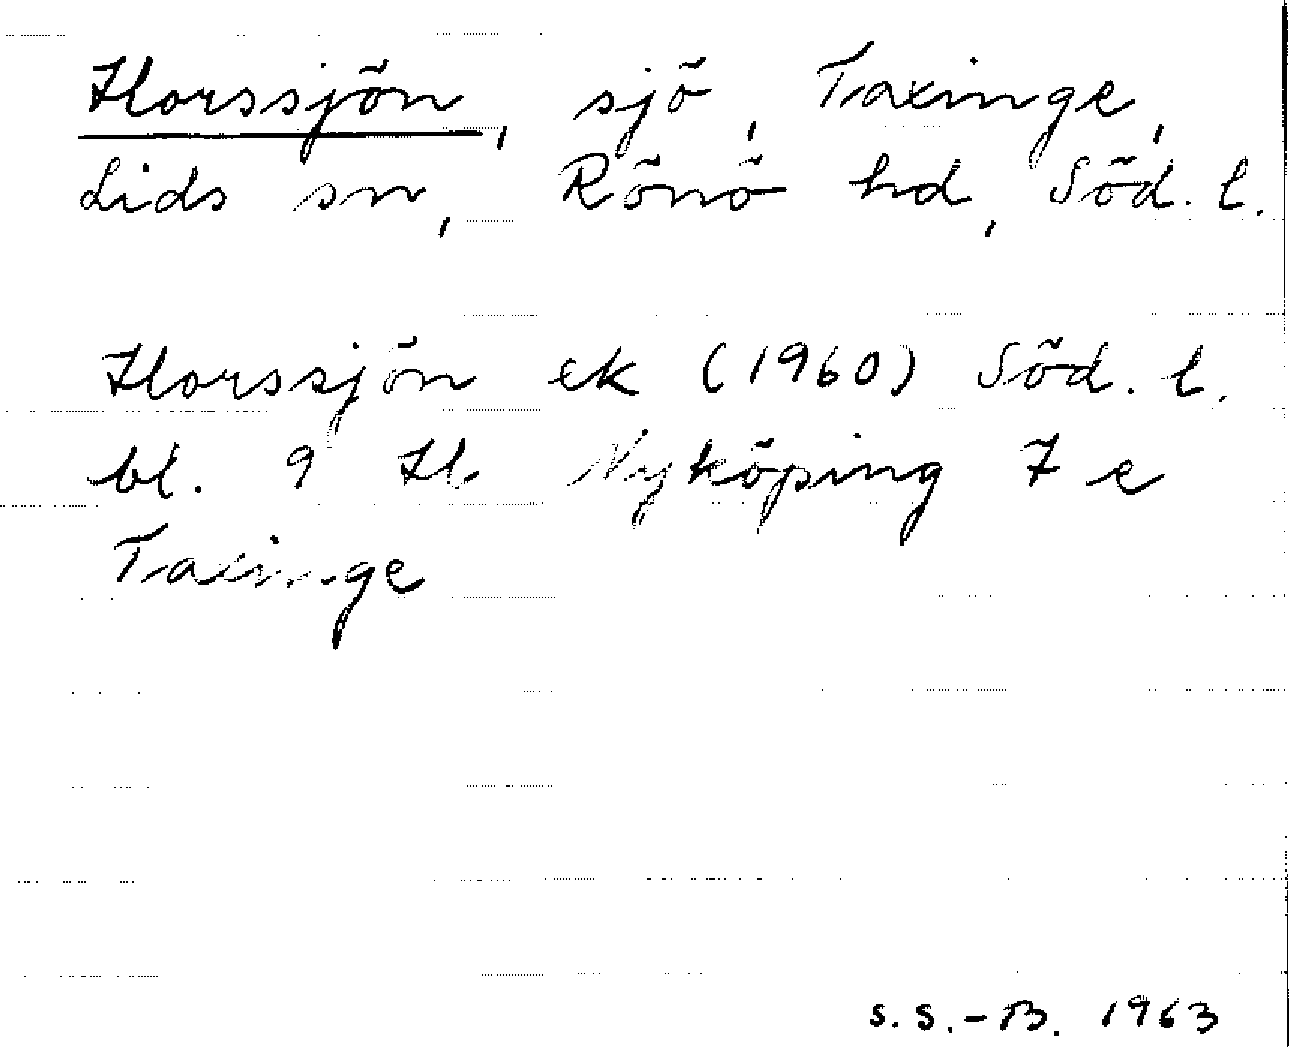 Horssjön, sjö, Taxinge,
Lids sn, Rönö hd, Söd. l.
Horssjön ek (1960) Söd. l.
bl. 9 H. Nyköping 7 e
Taxinge
S.S.-B. 1963